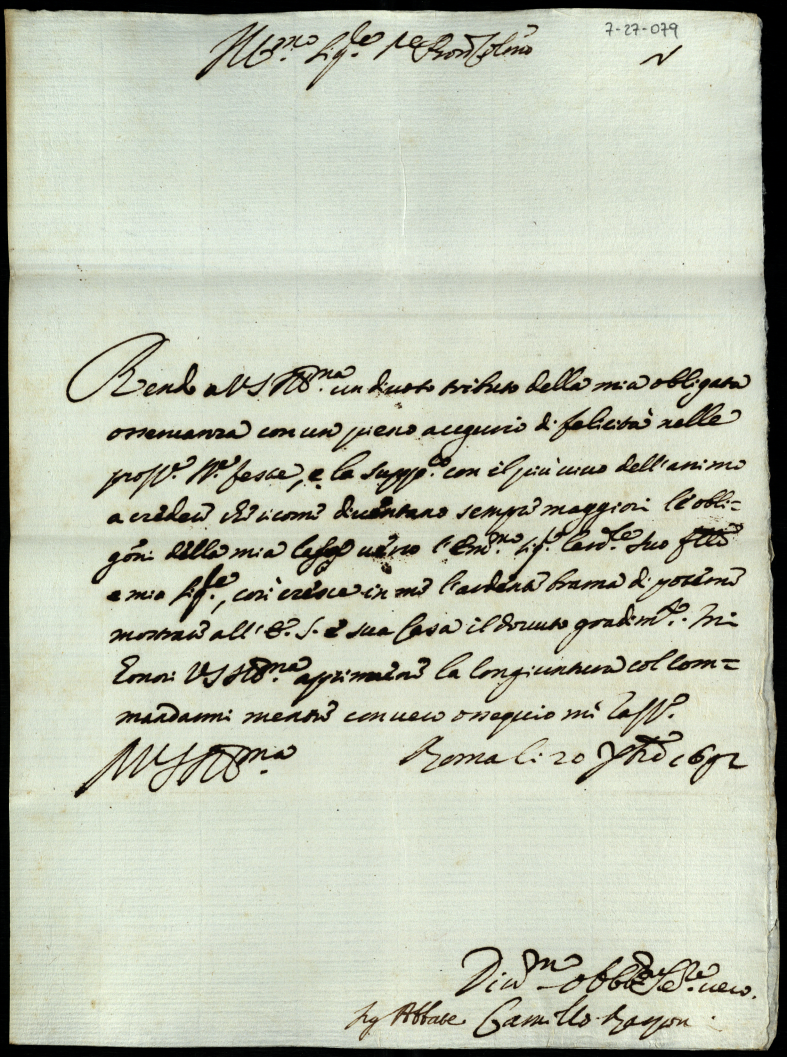 7-27-079
Ill.mo Sig.re P.e
Rendo a VS Ill.ma un divoto tributo della mia obligata
osservanza con un pieno augurio di felicità nelle
pross.e S.te feste, e la supp.co con il più vivo dell'animo
a credere che sicome diventano sempre maggiori le obli=
g.ni della mia Casa verso l'Em.mo Sig.r Card.le suo
e mio Sig.re, così cresce in me l'ardente brama di potermi
mostrare all'E. S. e sua Casa il dovuto gradim.to. Mi
honori VS Ill.ma aprirmene la Congiuntura col Com=
mandarmi mentre con vero ossequio mi rass.o
Di VS Ill.ma Roma li 20 Xbre 1692
Div.mo obb.mo Se.re vero
Sig Abbate Camillo